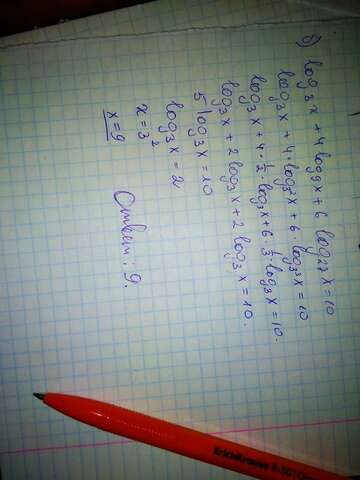 б) log₃x + 4log₉x + 6 log₂₇x = 10
log₃x + 4·log₃²x + 6·log₃³x = 10
log₃x + 4·½·log₃x + 6·⅓·log₃x = 10.
log₃x + 2 log₃x + 2 log₃x = 10.
5 log₃x = 10
log₃x = 2
x = 3²
x = 9
Ответ: 9.
ErichKrause